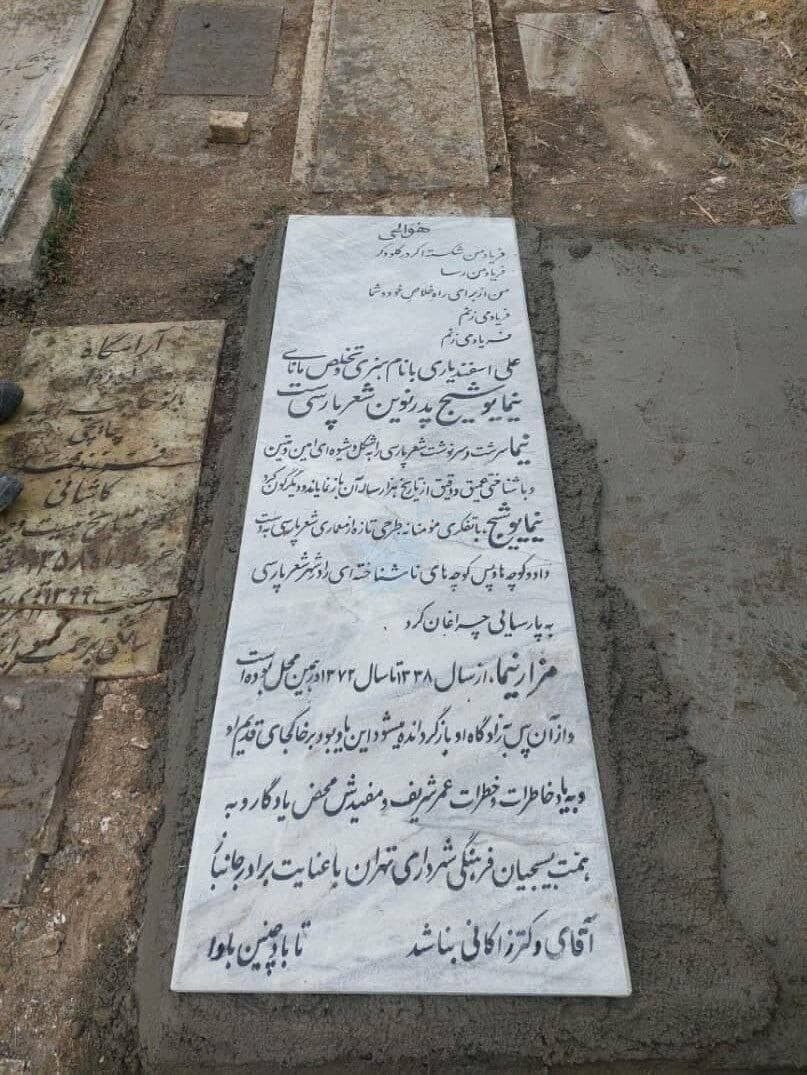 هوالحی
فریاد من شکسته اگر در گلو وگر
فریاد من رسا
من از برای راه خلاص خود و شما
فریاد می زنم
فریاد می زنم
علی اسفندیاری با نام هنری و تخلص مانای
نیما یوشیج پدر نوین شعر پارسی است
نیما سرشت و سرنوشت شعر پارسی را به شکل و شیوه ای امین و متین
و با شناختی عمیق و دقیق از تاریخ هزار ساله آن باز نمایاند و دیگرگون کرد
نیما یوشیج، با تفکری مؤمنانه طرحی تازه از معماری شعر پارسی به دست
داد و کوچه ها و پس کوچه های ناشناخته ای را در شهر شعر پارسی
به پارسایی چراغان کرد
مزار نیما، از سال ۱۳۳۸ تا سال ۱۳۷۲ در همین محل بوده است
و از آن پس به زادگاه او بازگردانده میشود این یادبود بر خاکجای قدیم او
و به یاد خاطرات و خطرات عمر شریف و مفیدش محض یادگار و به
همت بسیجیان فرهنگی شهرداری تهران با عنایت برادر جانباز
آقای دکتر زاکانی بنا شد تا باد چنین بادا
آرامگاه
چایچی
فرزند محمد
کاشانی